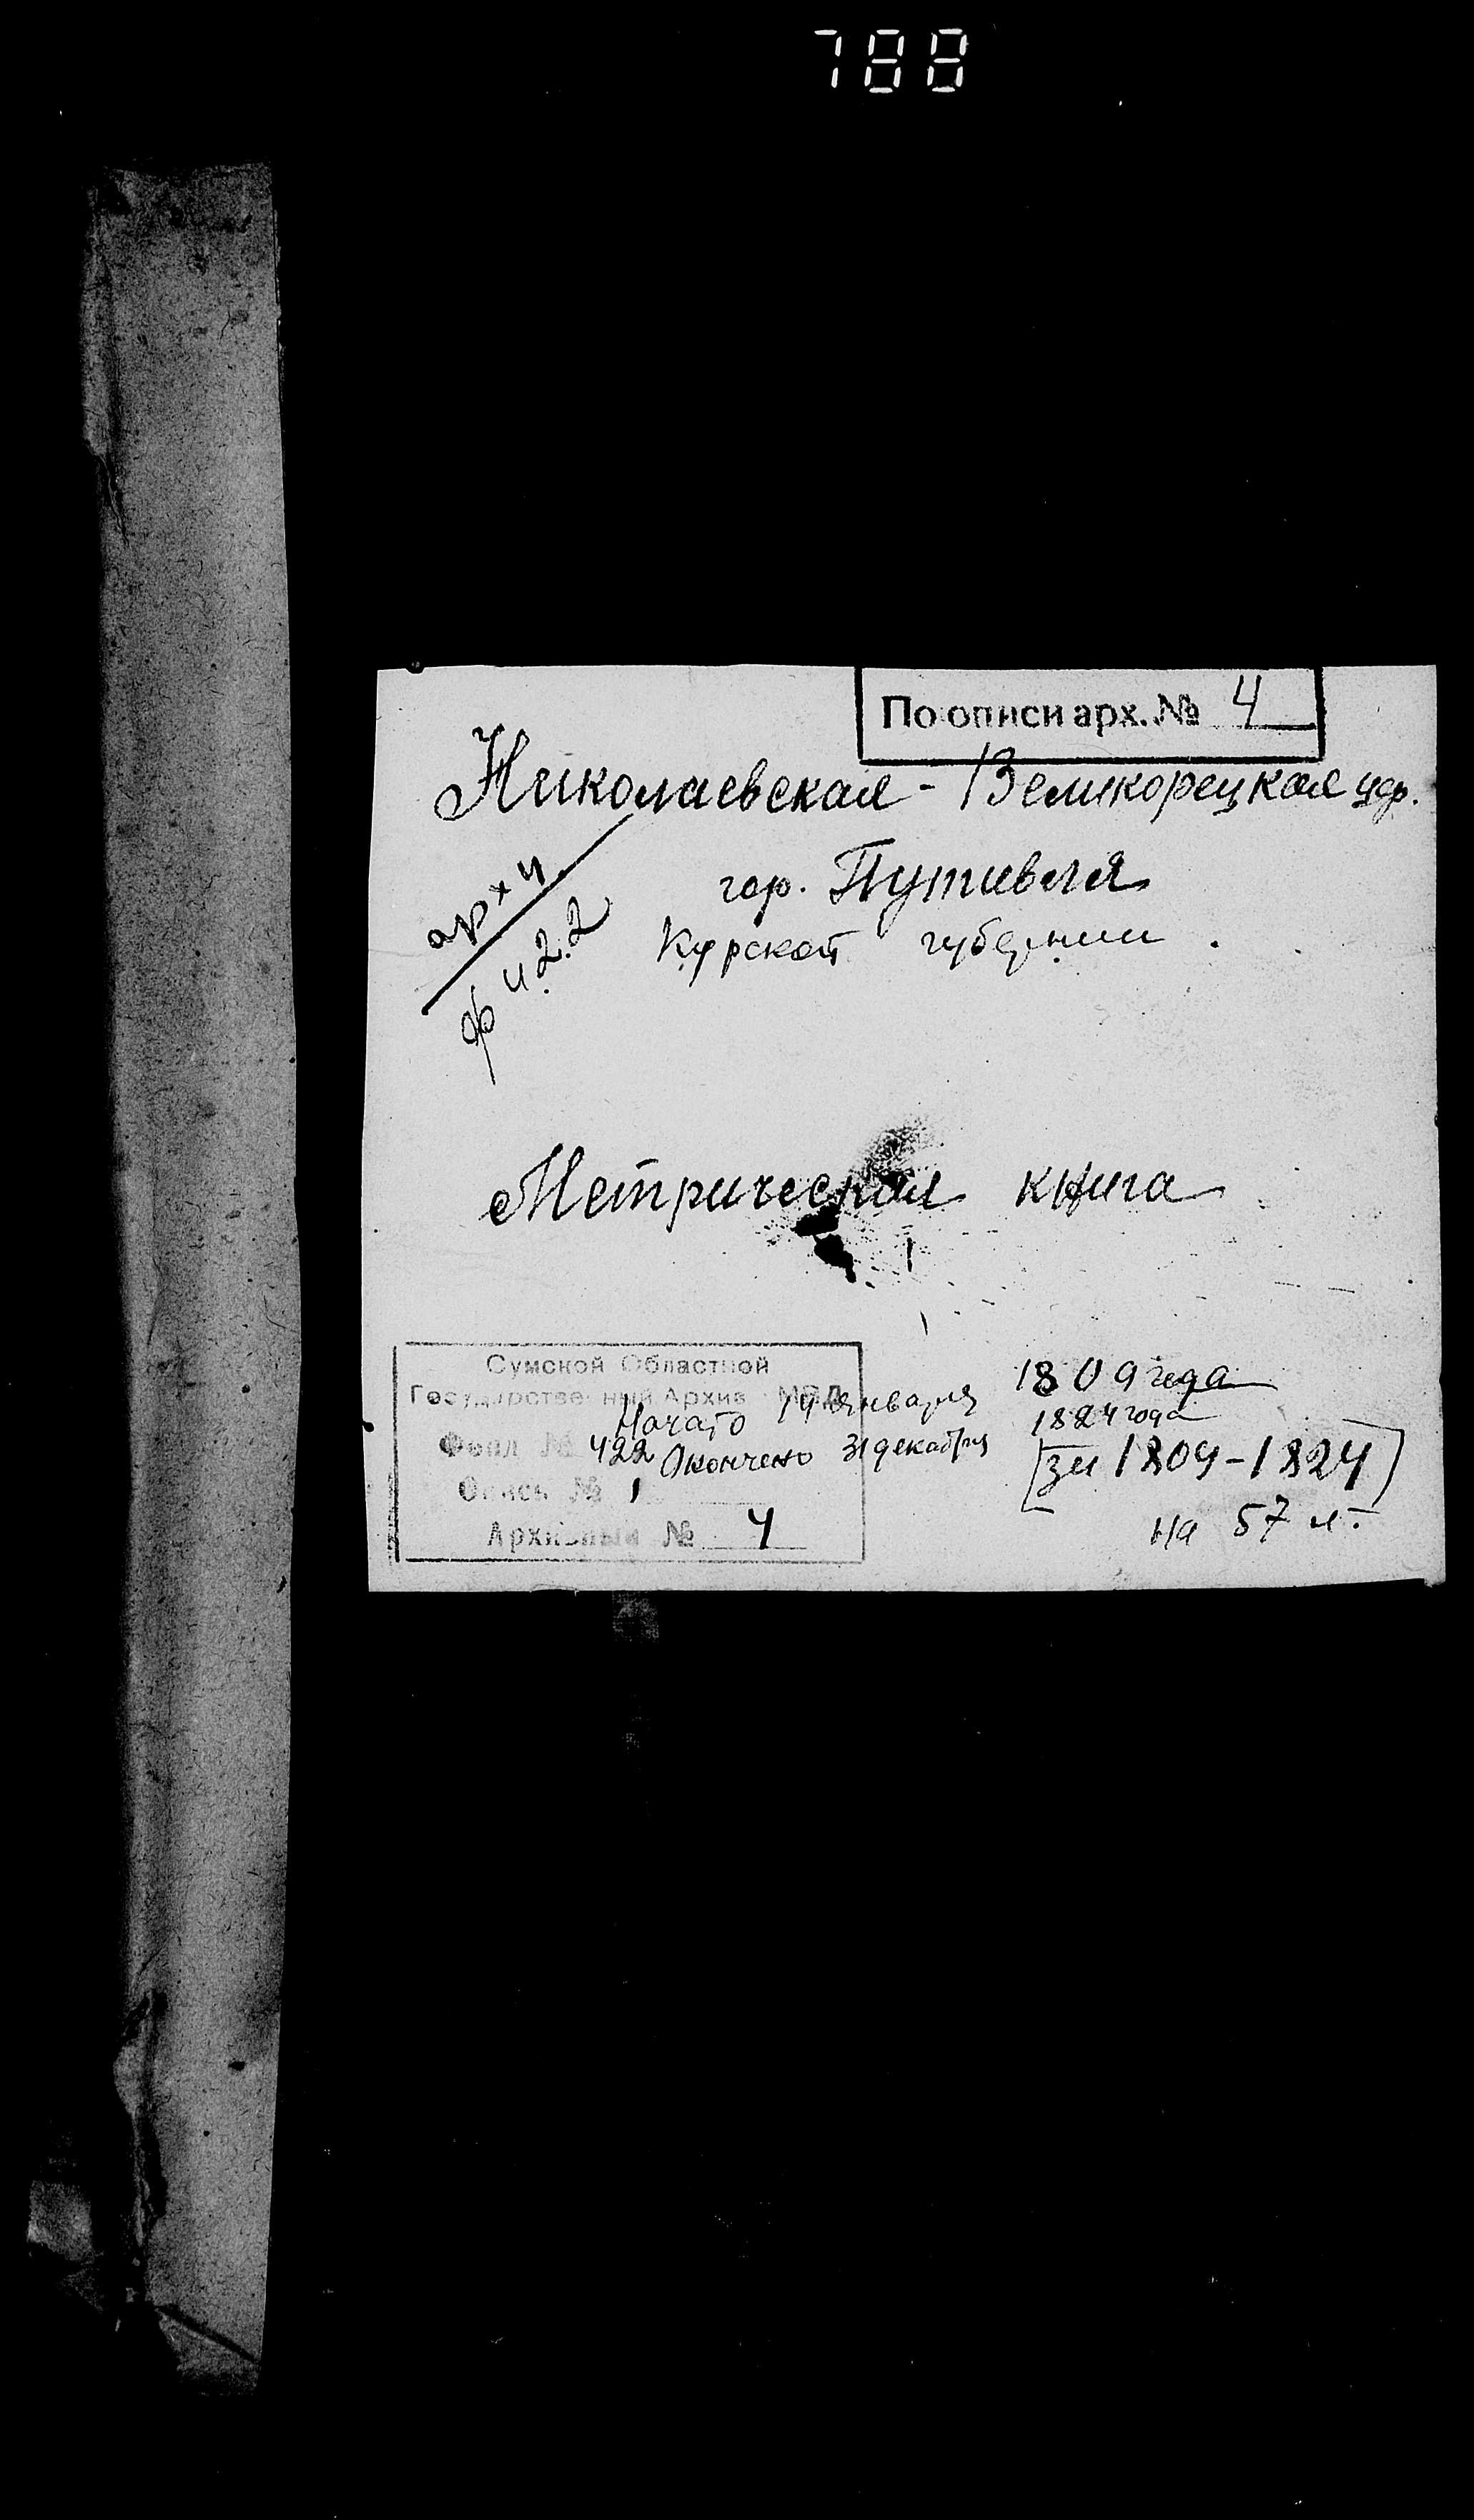 788
По описи арх. № 4
Николаевская - Великорецкая цер.
гор. Путивля
Курской губернии.
арх 4
ф 422
Метрическая книга
Сумской Областной
Государственный Архив МВД
Начато 14 января 1809 года
Окончено 31 декабря 1824 года
Фонд № 422
[за 1809-1824]
Опись № 1
на 57 л.
Архивный № 4